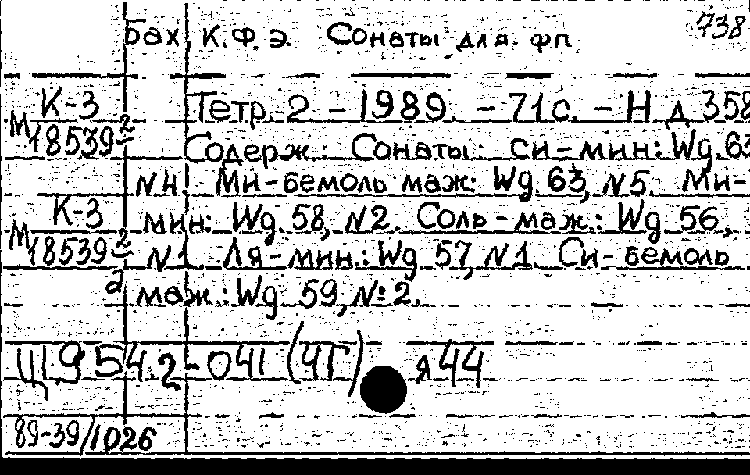 738
Бах, К.Ф.Э. Сонаты для фп
К-3 Тетр. 2 - 1989. - 71с. - Н д 358
М18539/2 Содерж.: Сонаты: си-мин: Wg.63
N4. Ми-бемоль маж: Wg. 63, N5. Ми-
К-3 мин: Wg. 58, N2. Соль-маж.: Wg 56,
М18539/2 N1. Ля-мин.: Wg 57, N1. Си-бемоль
а маж.: Wg. 59, №2.
Щ.954.2-041 (4Г) я44
89-39/1026